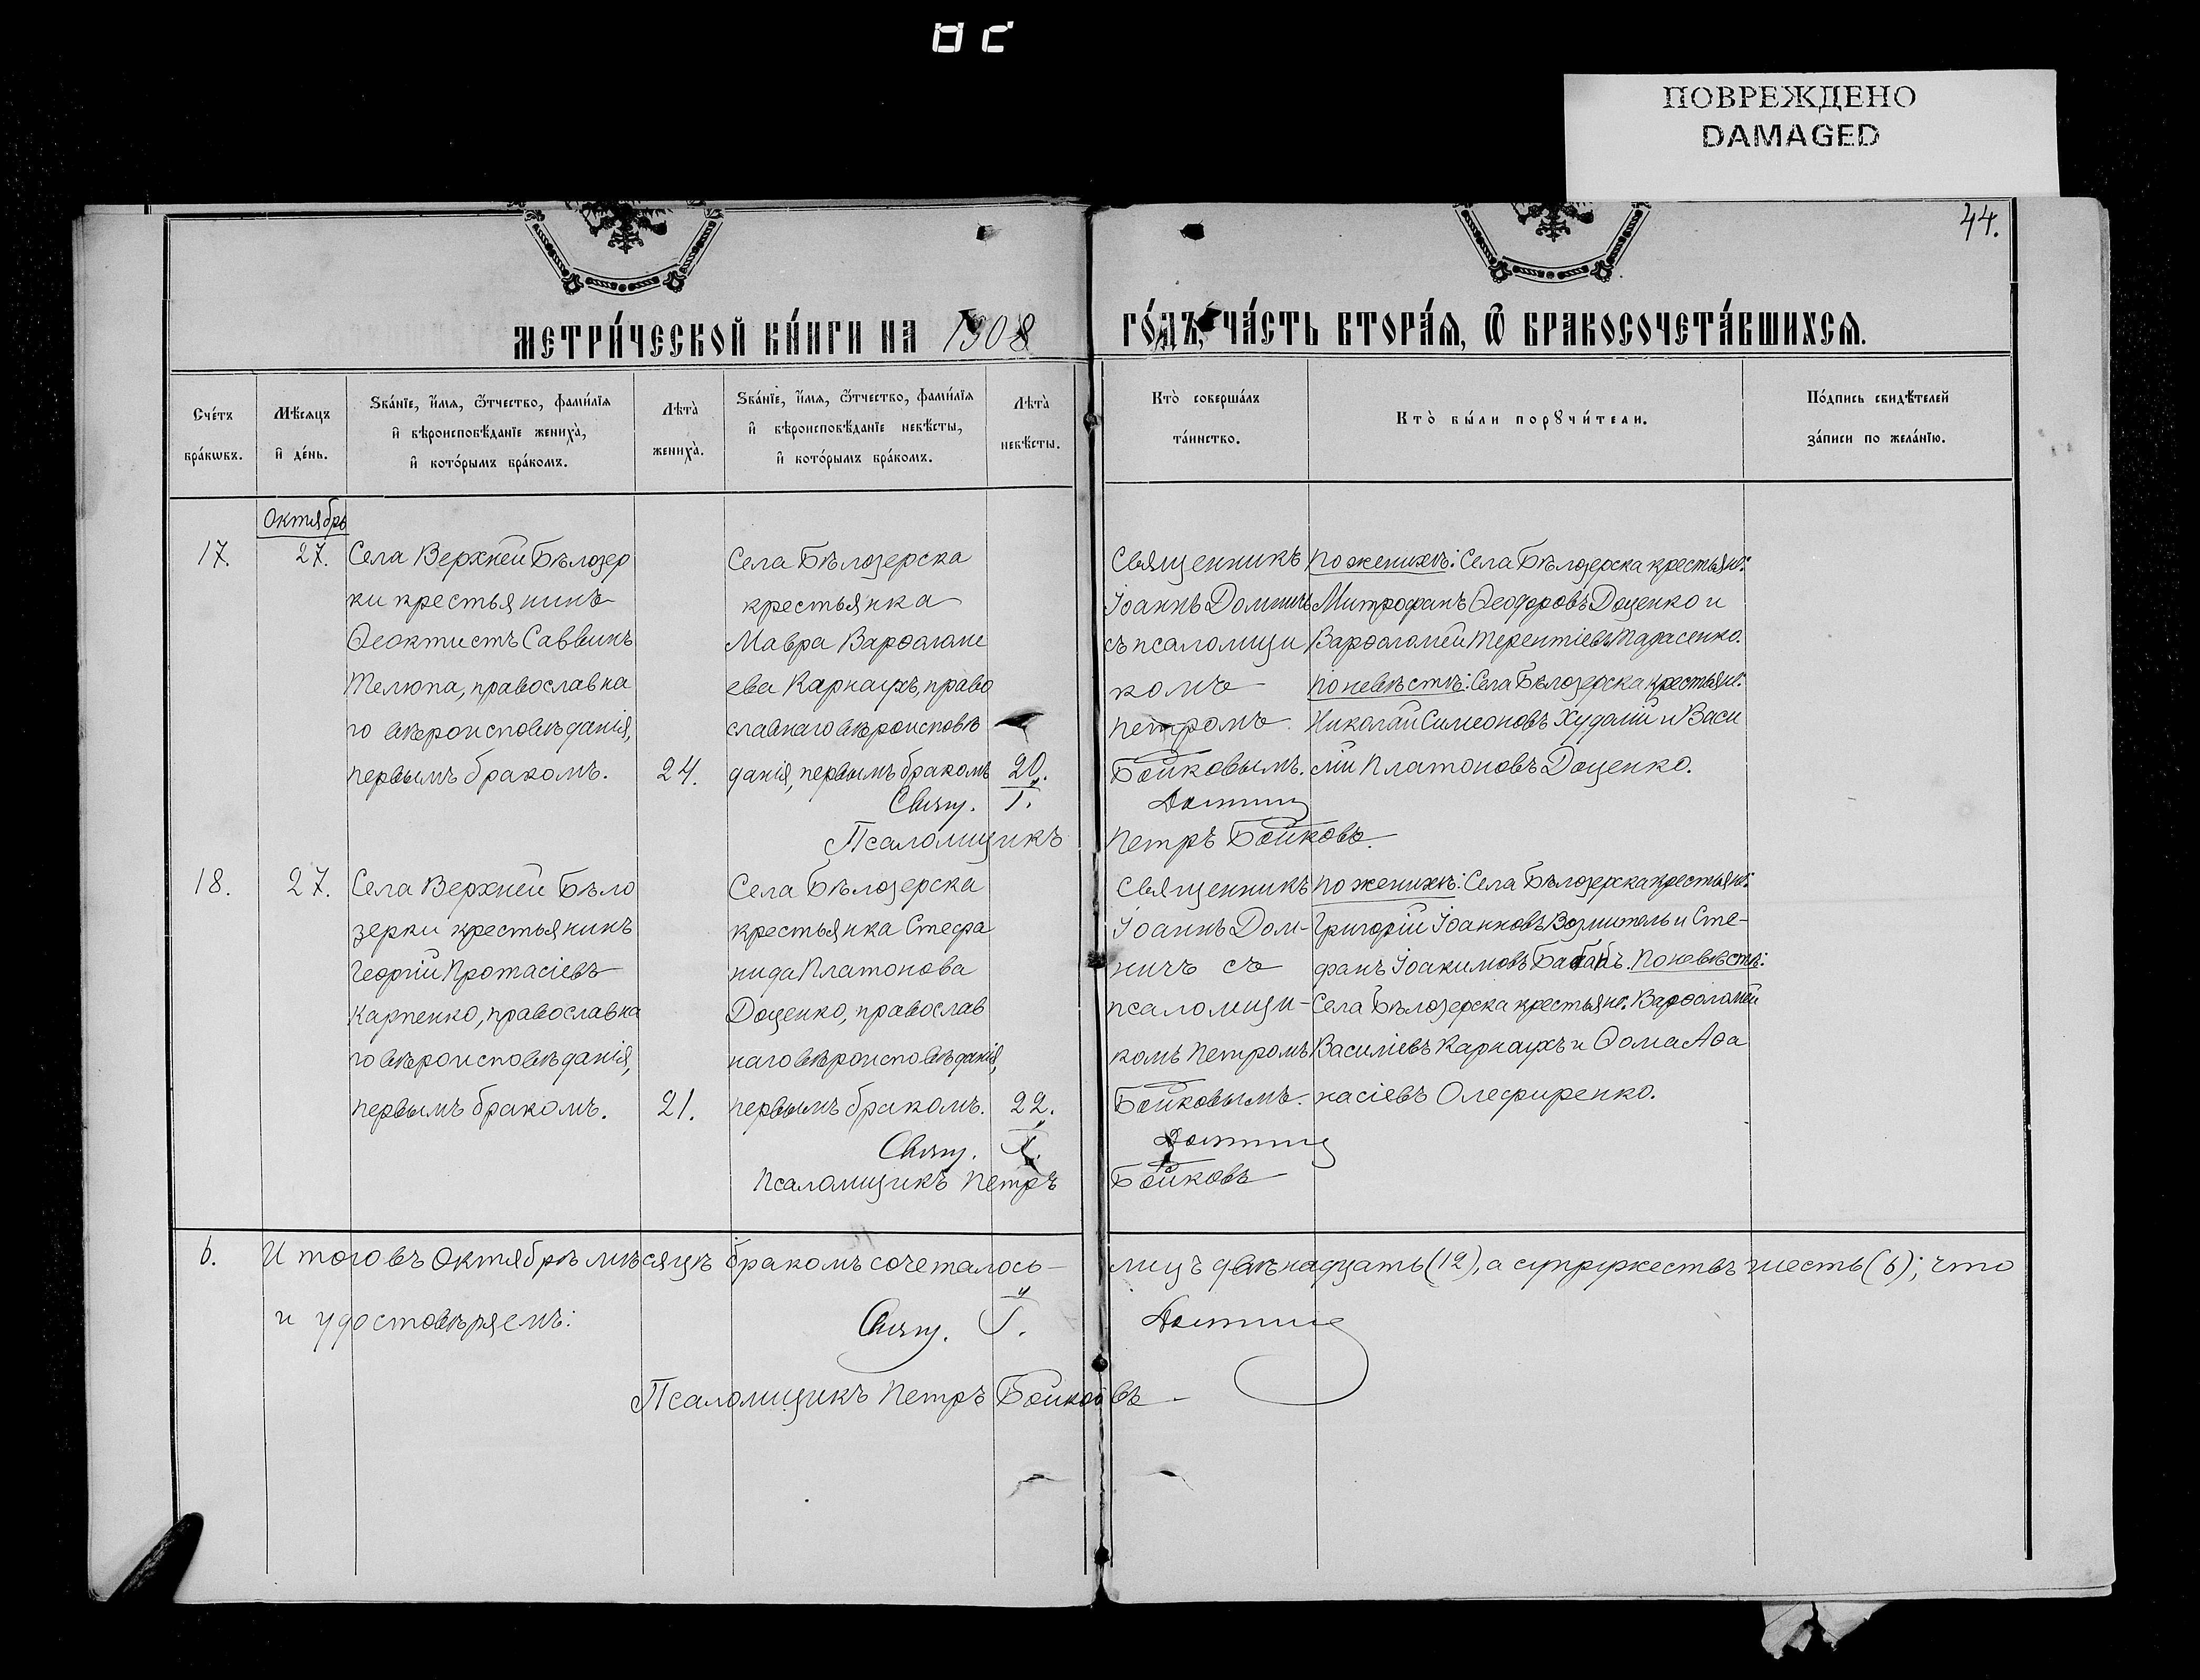 ПОВРЕЖДЕНО
DAMAGED
44.
МЕТРИ́ЧЕСКОЙ КНИ́ГИ НА 1908 ГО́ДЪ, ЧА́СТЬ ВТОРА́Я, Ѿ БРАКОСОЧЕТА́ВШИХСЯ.
Сче́тъ бра́кѡвъ.
Мѣ́сяцъ и҆ де́нь.
Ѕва́нїе, и҆́мя, ѻ҆́тчество, фами́лїя
и҆ вѣроисповѣ́данїе жениха̀,
и҆ кото́рымъ бра́комъ.
Лѣта̀ жениха̀.
Ѕва́нїе, и҆́мя, ѻ҆́тчество, фами́лїя
и҆ вѣроисповѣ́данїе невѣ́сты,
и҆ кото́рымъ бра́комъ.
Лѣта̀ невѣ́сты.
Кто̀ соверша́лъ
та́инство.
Кто̀ бы́ли порꙋчи́тели.
По́дпись свидѣ́телей
за́писи по жела́нїю.
Октябрь
17.
27.
Села Верхней Бѣлозер
ки крестьянинъ
Ѳеоктистъ Саввинъ
Телюпа, православна
го вѣроисповѣданія,
первымъ бракомъ.
24.
Села Бѣлозерска
крестьянка
Мавра Варѳоломе
ева Карнаухъ, право
славнаго вѣроисповѣ
данія, первымъ бракомъ
20.
Священникъ
Іоаннъ Домничъ
съ псаломщи
комъ
Петромъ
Бойковымъ.
По женихѣ: Села Бѣлозерска крестьян:
Митрофанъ Ѳеодоровъ Доценко и
Варѳоломей Терентіевъ Тарасенко.
По невѣстѣ: Села Бѣлозерска крестьян:
Николай Симеоновъ Худолій и Васи
лій Платоновъ Доценко.
Свящ. І. Домнич
Псаломщикъ Петръ Бойковъ.
18.
27.
Села Верхней Бѣло
зерки крестьянинъ
Георгій Протасіевъ
Карпенко, православна
го вѣроисповѣданія,
первымъ бракомъ.
21.
Села Бѣлозерска
крестьянка Стефа
нида Платонова
Доценко, православ
наго вѣроисповѣданія,
первымъ бракомъ.
22.
Священникъ
Іоаннъ Дом-
ничъ съ
псаломщи-
комъ Петромъ
Бойковымъ.
По женихѣ: Села Бѣлозерска крестьян:
Григорій Іоанновъ Возмитель и Сте-
фанъ Іоакимовъ По невѣстѣ:
Села Бѣлозерска крестьян. Варѳоломей
Василіевъ Карнаухъ и Ѳома Аѳа
насіевъ Олефиренко.
Свящ. І. Домнич
Псаломщикъ Петръ Бойковъ
6.
Итого въ Октябрѣ мѣсяцѣ бракомъ сочеталось лицъ двѣнадцать (12), а супружествъ шесть (6); что
и удостовѣряемъ:
Свящ. І. Домнич
Псаломщикъ Петръ Бойковъ